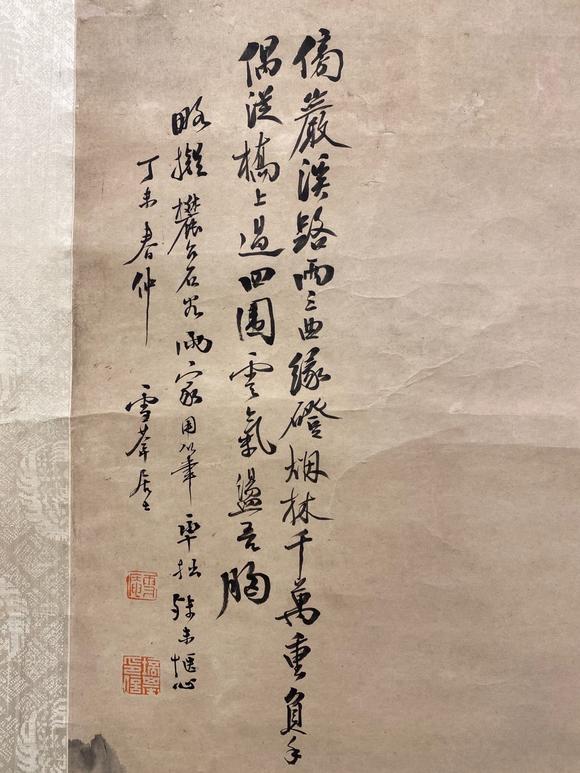 傍巖溪路兩三曲緣磴烟林千萬重負手
偶從橋上過四圍雲氣盪吾胸
略擬麓台石谷兩家用筆率拙殊未愜心
丁未春仲
雪居士